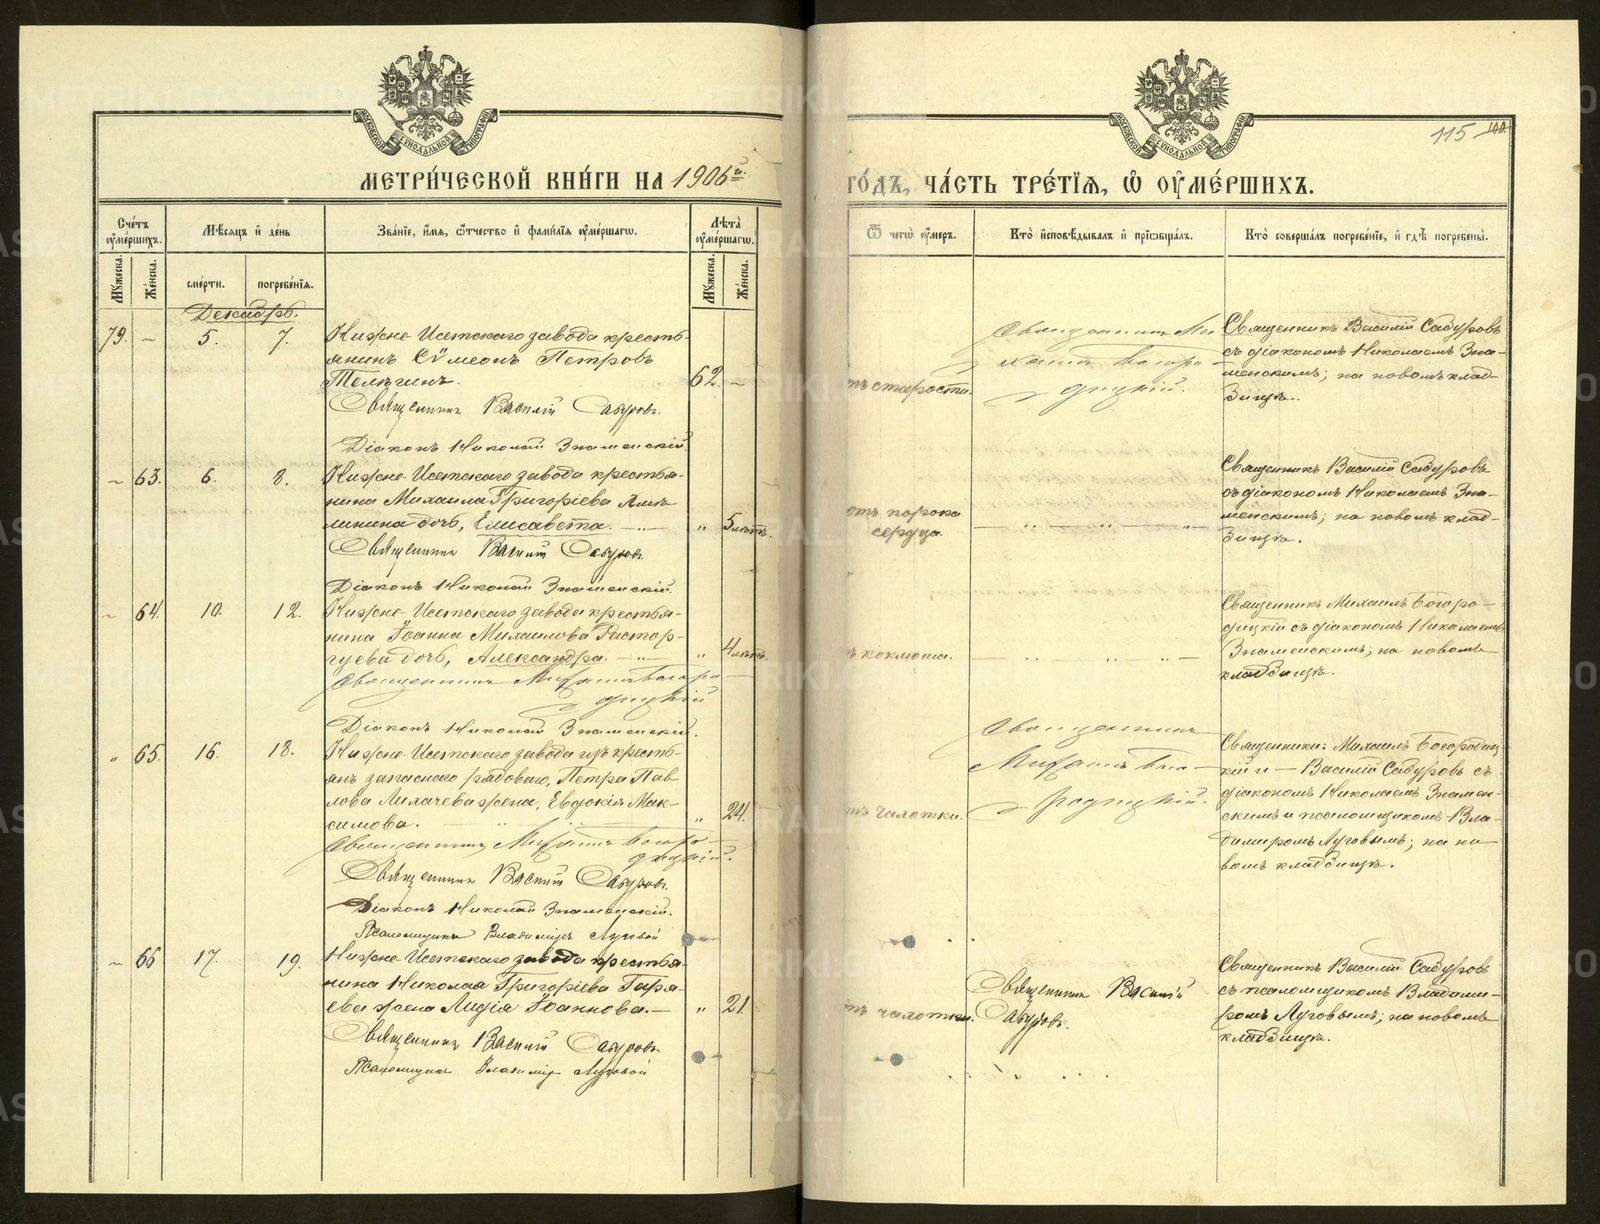 115 100
МЕТРИ́ЧЕСКОЙ КНИ́ГИ НА 1906й.
ГО́ДЪ, ЧА́СТЬ ТРЕ́ТІЯ, Ѡ ОУМЕ́РШИХЪ.
Сче́тъ оуме́ршихъ.
Мѣ́сяцъ и де́нь
Зва́ніе, и́мя, ѻ́тчество и фами́лія оуме́ршагѡ.
Лѣта̀ оуме́ршагѡ.
Ѿ чегѡ̀ оу́меръ.
Кто̀ исповѣ́дывалъ и пріѡбща́лъ.
Кто̀ соверша́лъ погребе́ніе, и гдѣ̀ погребены̀.
Му́жеска.
Же́нска.
сме́рти.
погребе́нія.
Му́жеска.
Же́нска.
Декабрь.
79. – 5. 7.
Нижне-Исетскаго завода кресть-
янинъ Сѵмеонъ Петровъ
Телѣгинъ. 62. –
Священникъ Василій Сабуровъ.
Діаконъ Николай Знаменскій.
тъ старости.
Священникъ Ми-
хаилъ Богоро-
дицкій.
Священникъ Василій Сабуровъ
съ діакономъ Николаемъ Зна-
менскимъ; на новомъ клад-
бищѣ.
– 63. 6. 8.
Нижне-Исетскаго завода крестья-
нина Михаила Григоріева
дочь, Елисавета. – „ – „ 5 лѣтъ.
Священникъ Василій Сабуровъ.
Діаконъ Николай Знаменскій.
отъ порока
сердца.
Священникъ Василій Сабуровъ
съ діакономъ Николаемъ Зна-
менскимъ; на новомъ клад-
бищѣ.
– 64. 10. 12.
Нижне-Исетскаго завода крестья-
нина Іоанна Михаилова Растор-
гуева дочь, Александра. – „ – „ 4 лѣтъ.
Священникъ Михаилъ Богоро-
дицкій
Діаконъ Николай Знаменскій.
ъ коклюша.
Священникъ Михаилъ Богоро-
дицкій съ діакономъ Николаемъ
Знаменскимъ; на новомъ
кладбищѣ.
„ 65. 16. 18.
Нижне-Исетскаго завода изъ кресть-
янъ запаснаго рядоваго, Петра Пав-
лова Лихачева жена, Евдокія Мак-
симова. „ 24.
Священникъ Михаилъ Богоро-
дицкій.
Священникъ Василій Сабуровъ.
Діаконъ Николай Знаменскій.
Псаломщикъ Владиміръ Луговой
тъ чахотки.
Священникъ
Михаилъ Бого-
родицкій.
Священники: Михаилъ Богородиц-
кій и – Василій Сабуровъ съ
діакономъ Николаемъ Знамен-
скимъ и псаломщикомъ Вла-
диміромъ Луговымъ; на но-
вомъ кладбищѣ.
– 66 17. 19.
Нижне-Исетскаго завода крестья-
нина Николая Григоріева Гаря-
ева жена Лидія Іоаннова. – „ 21.
Священникъ Василій Сабуровъ
Псаломщикъ Владиміръ Луговой
тъ чахотки.
Священникъ Василій
Сабуровъ.
Священникъ Василій Сабуровъ
съ псаломщикомъ Владими-
ромъ Луговымъ; на новомъ
кладбищѣ.
METRIKI.GASO-URAL.RU